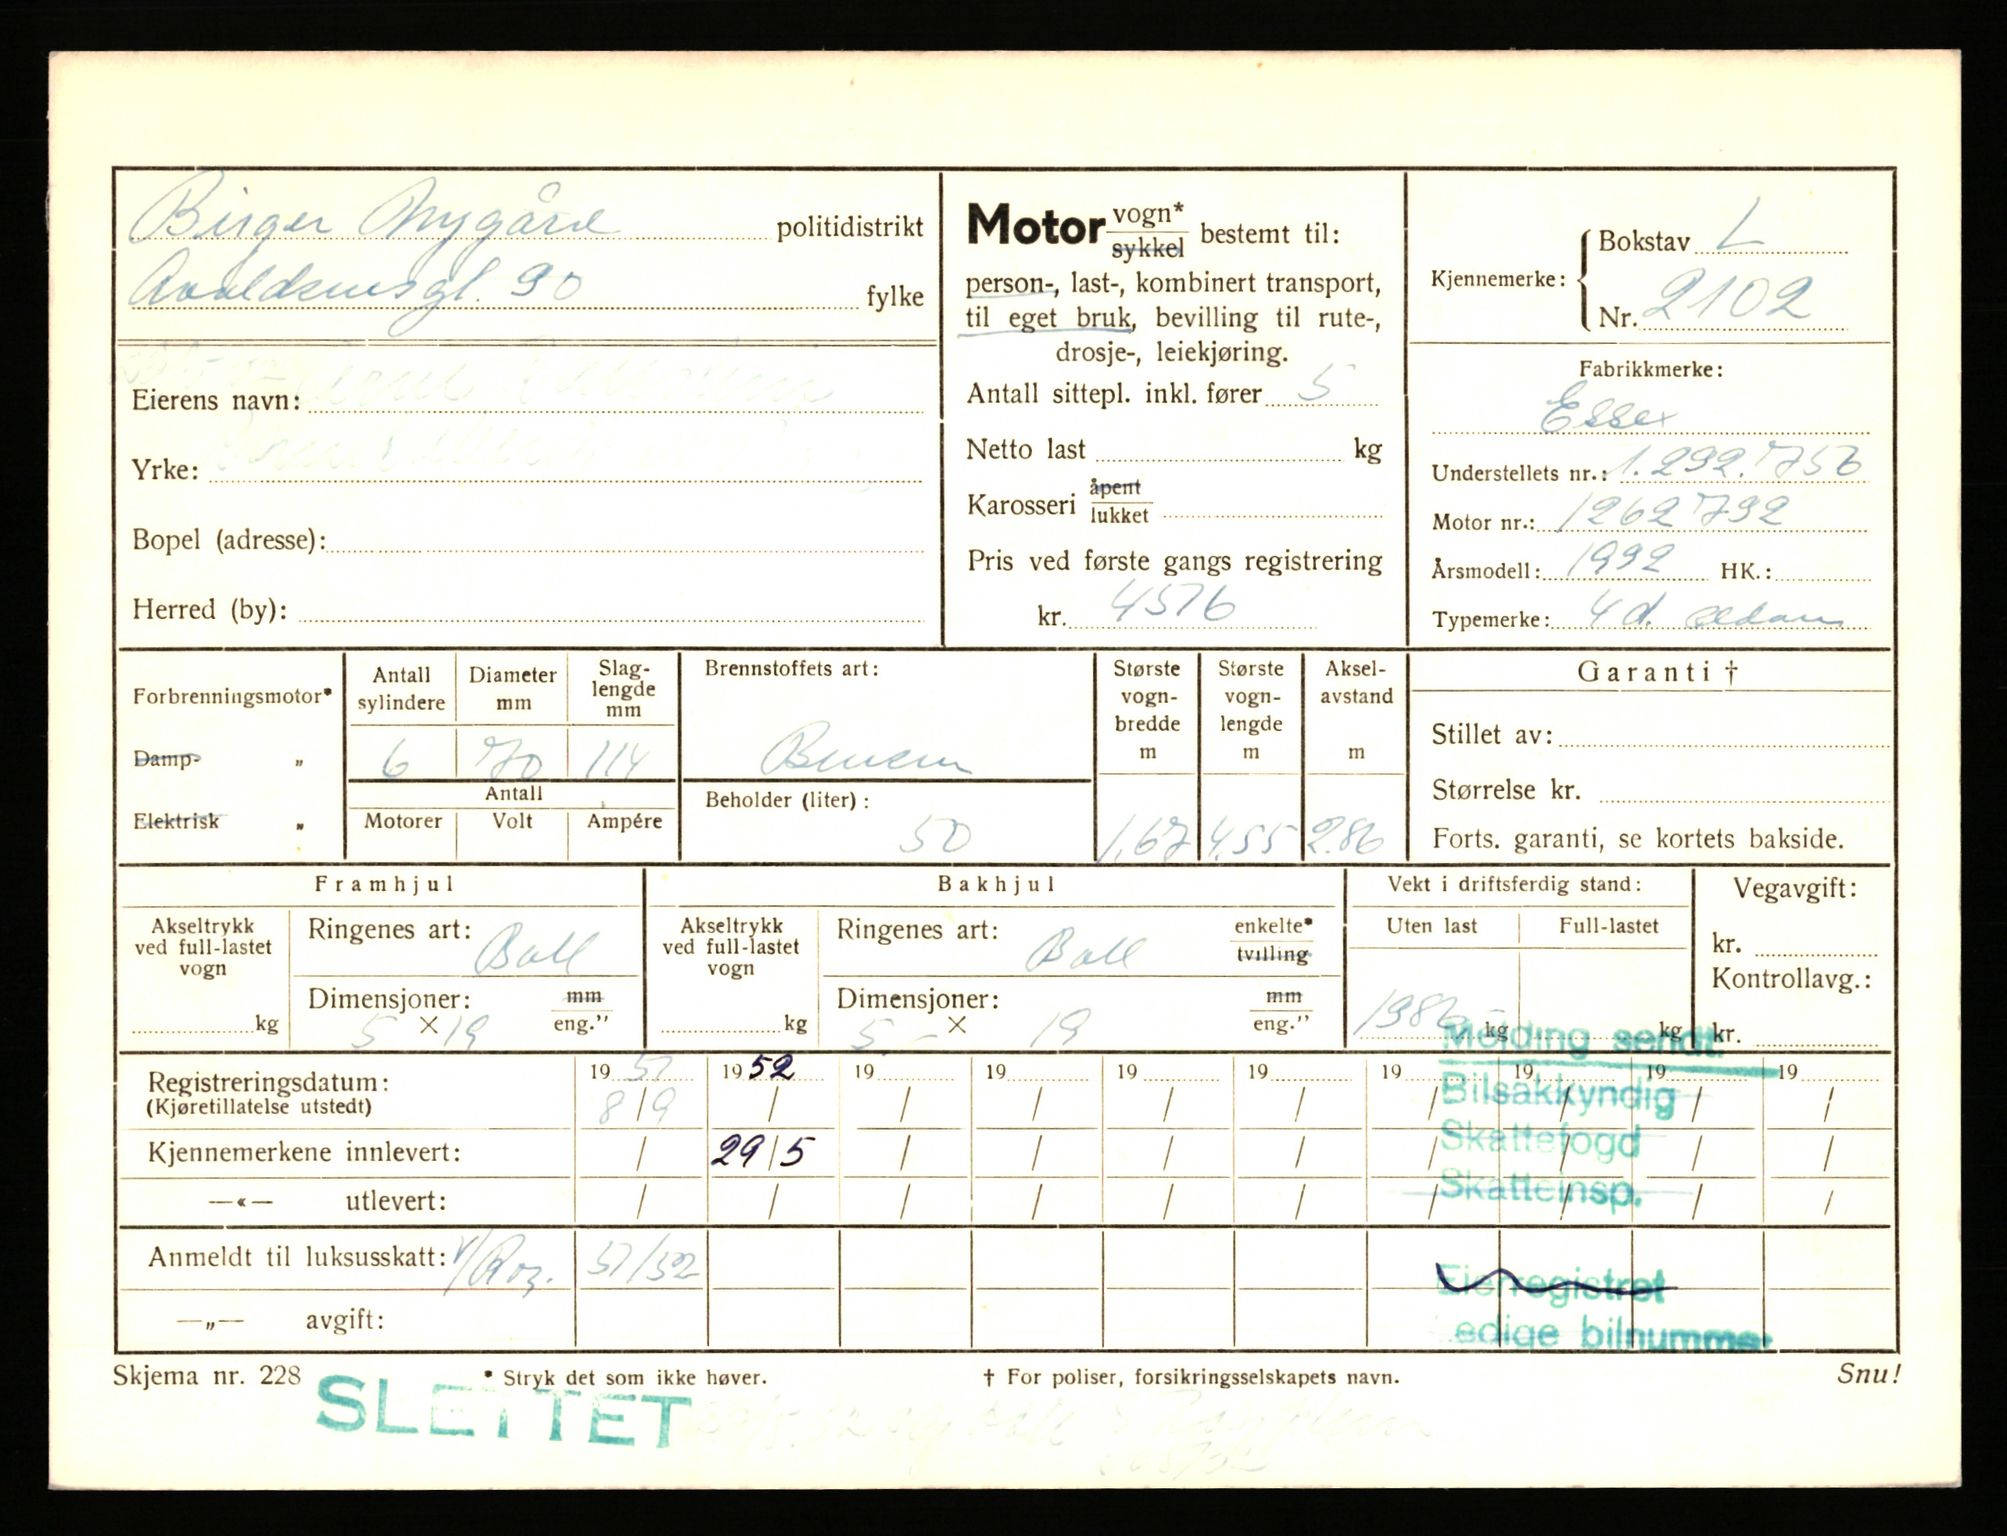 Birger Nygård politidistrikt
Avaldsnesgt. 90 fylke
Eierens navn:
Yrke:
Bopel (adresse):
Herred (by):
Motor vogn* sykkel bestemt til:
person-, last-, kombinert transport,
til eget bruk, bevilling til rute-,
drosje-, leiekjøring.
Antall sittepl. inkl. fører 5
Netto last kg
Karosseri åpent lukket
Pris ved første gangs registrering
kr. 4576
Kjennemerke: Bokstav L
Nr. 2102
Fabrikkmerke:
Essex
Understellets nr.: 1.292.756
Motor nr.: 1262792
Årsmodell: 1992 HK.:
Typemerke: 4 d. sedan
Forbrenningsmotor*
Damp- "
Elektrisk "
Antall sylindere Diameter mm Slaglengde mm
6 70 114
Antall
Motorer Volt Ampére
Brennstoffets art:
Bensin
Beholder (liter):
50
Største vognbredde m
1.67
Største vognlengde m
4.55
Akselavstand m
2.86
Garanti †
Stillet av:
Størrelse kr.
Forts. garanti, se kortets bakside.
Framhjul
Akseltrykk ved full-lastet vogn
kg
Ringenes art: Ball
Dimensjoner: mm eng."
5 × 19
Bakhjul
Akseltrykk ved full-lastet vogn
kg
Ringenes art: Ball enkelte* tvilling
Dimensjoner: mm eng."
5 - × 19
Vekt i driftsferdig stand:
Uten last Full-lastet
kg kg
Vegavgift:
kr.
Kontrollavg.:
kr.
Registreringsdatum: 19 51 19 52 19 19 19 19 19 19 19 19
(Kjøretillatelse utstedt) 8/9 / / / / / / / / /
Kjennemerkene innlevert: / 29/5 / / / / / / / /
—«— utlevert: / / / / / / / / / /
Anmeldt til luksusskatt: 51/52
—„— avgift:
Melding sendt:
Bilsakkyndig
Skattefogd
Skatteinsp.
Eierregistret
edige bilnummer
Skjema nr. 228 * Stryk det som ikke høver. † For poliser, forsikringsselskapets navn. Snu!
SLETTET